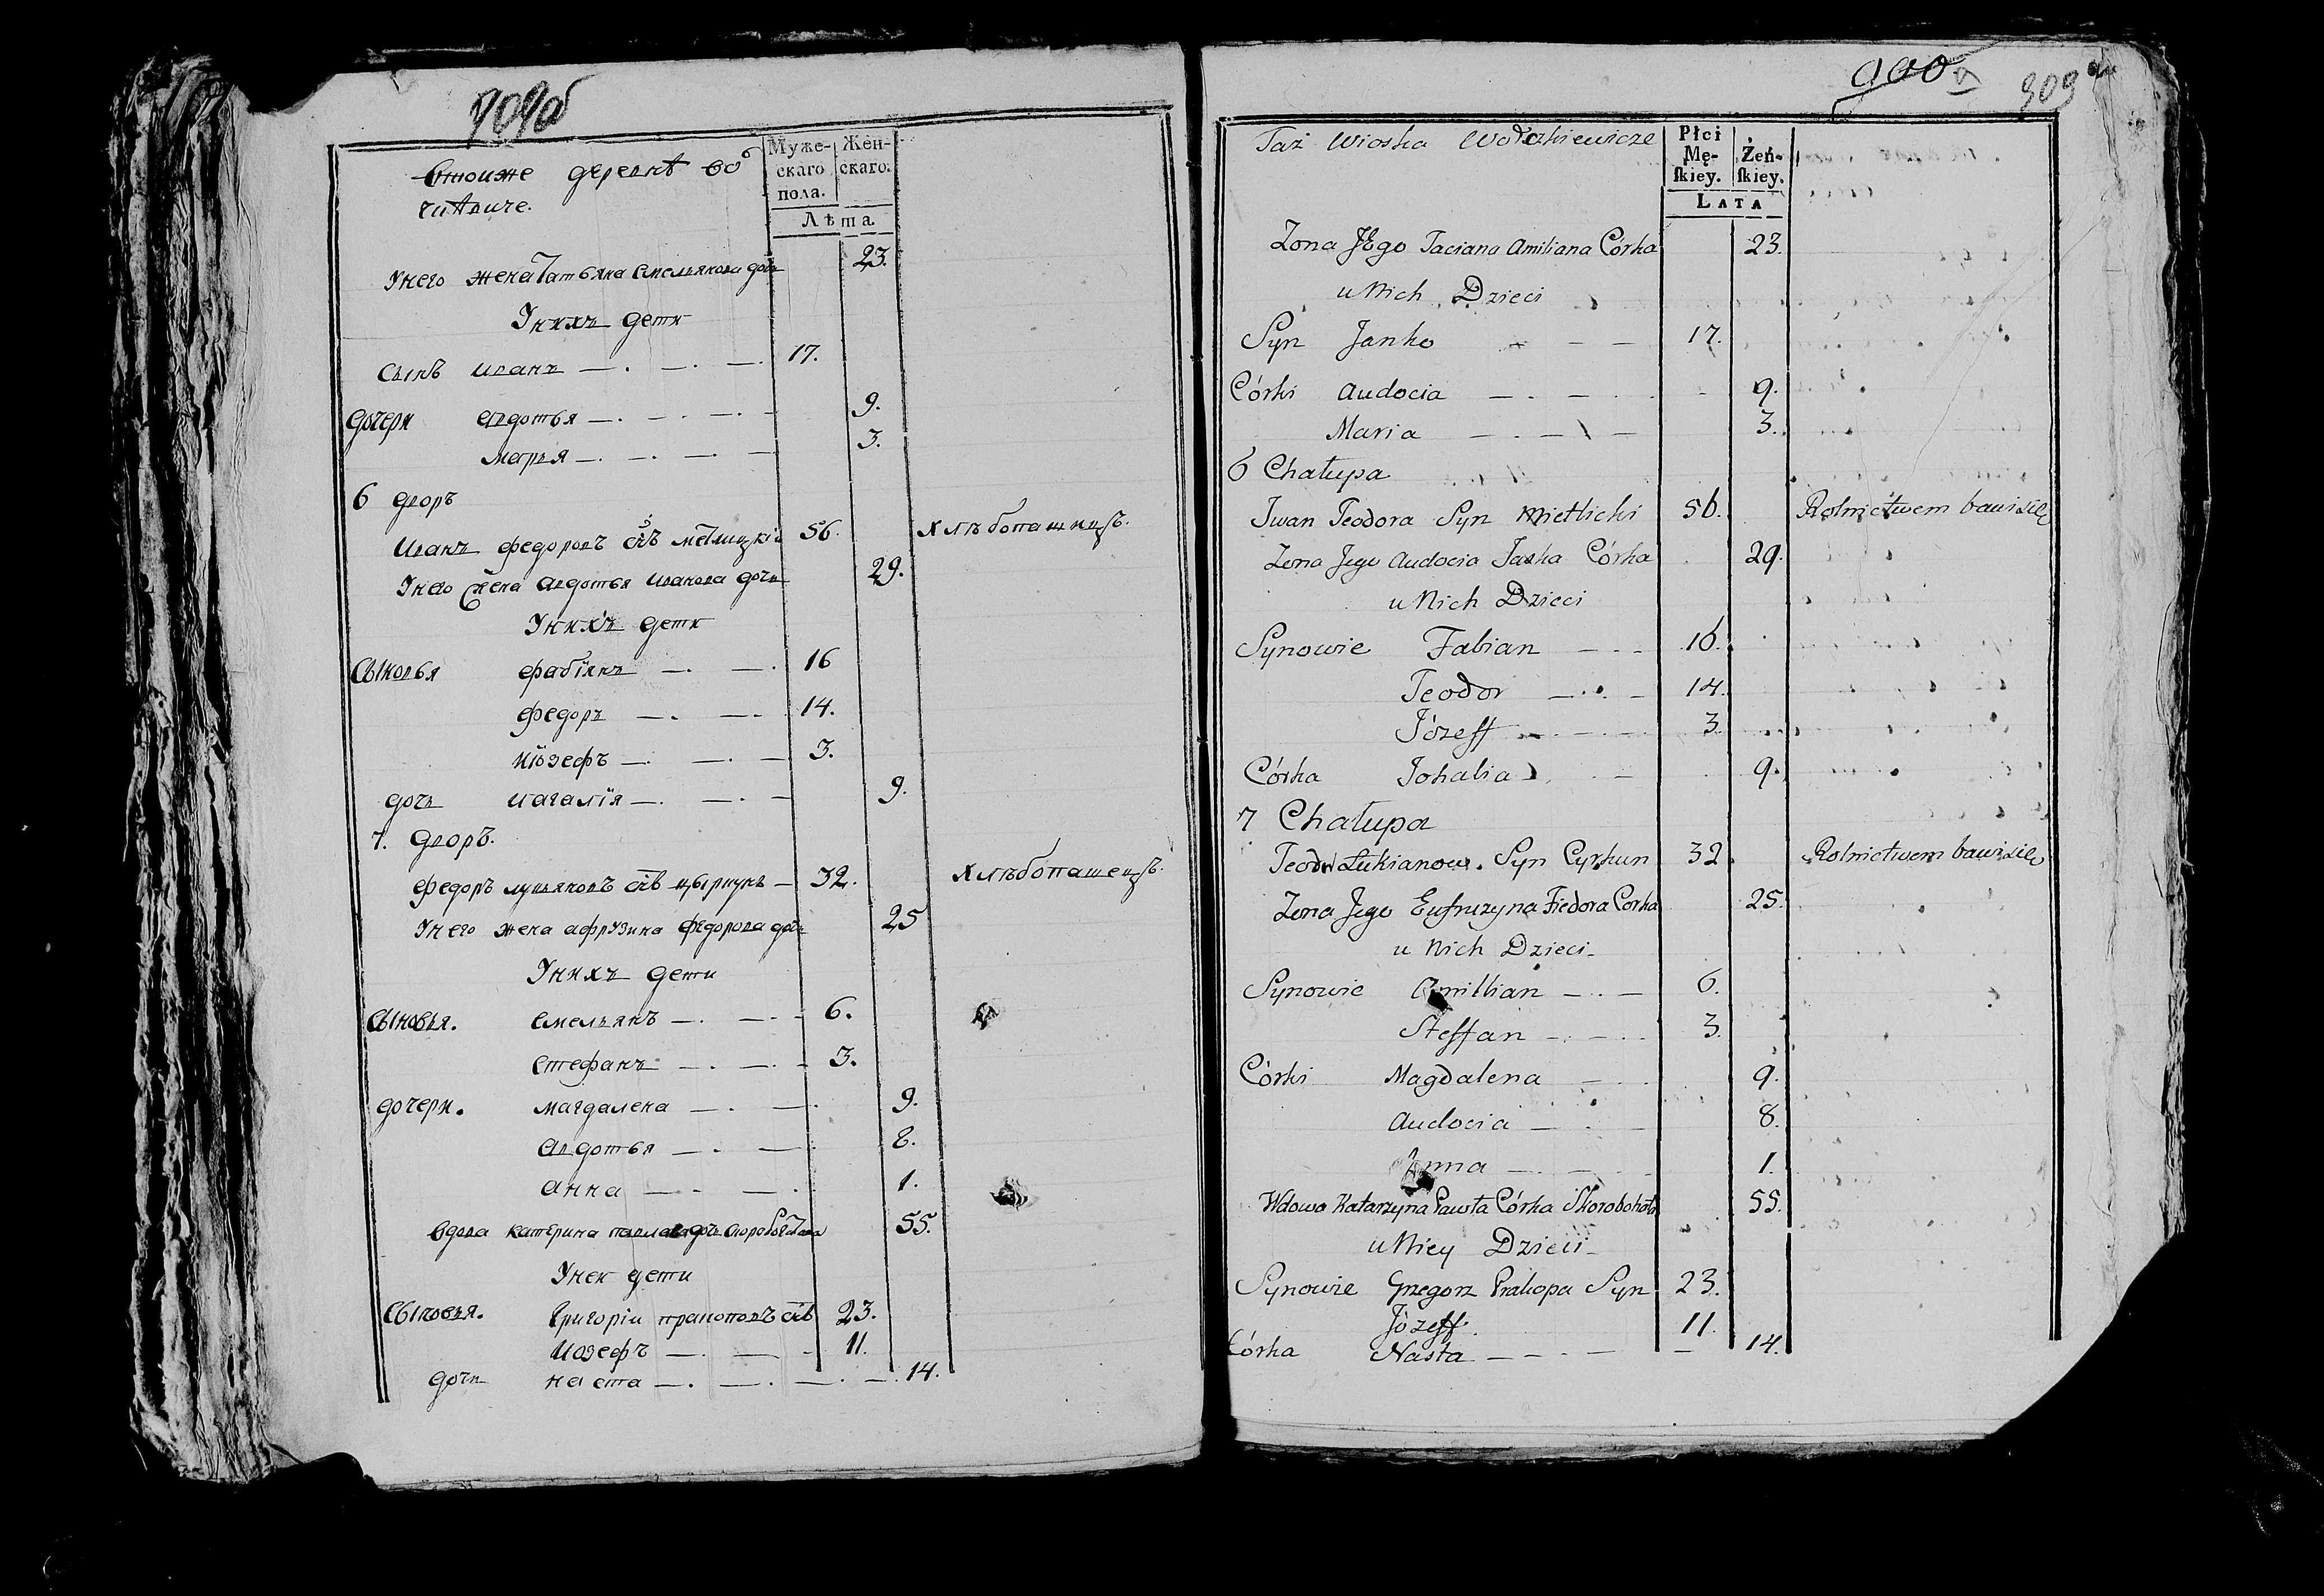 909б
Втоиже деревнѣ во
Муже-
скаго
пола.
Жен-
скаго.
Лѣта.
Унего жена Татьяна Емельянова дочь 23.
Унихъ дети
Сынъ Иванъ —. —. —. 17.
Дочери Авдотья —. —. —. — 9.
Марья —. —. —. — 3.
6 дворъ
Иванъ Федоровъ снъ метлицкiй 56. хлѣбопашецъ.
Унего жена Авдотья Иванова дочь 29.
Унихъ дети
Сыновья Фабiянъ —. —. 16
Федоръ —. —. 14.
Иiозефъ —. —. — 3.
дочь Магалiя —. —. — 9.
7. Дворъ.
Федоръ лукьяновъ снъ цыркунъ — 32. хлѣбопашецъ.
Унего жена афрузина Федорова дочь 25
Унихъ дети
Сыновья. Емельянъ —. —. — 6.
Стефанъ —. —. — 3.
дочери. Магдалена —. —. 9.
Авдотья —. —. 8.
Анна —. —. 1.
Вдова Катерина павлова дочь 55.
Унеи дети
Сыновья. Григорiи пракоповъ снъ 23.
Иозефъ —. —. 11.
дочь наста —. —. —. —. 14.
900
909
Taż Wioska Wołczkiewicze
Płci
Mę-
skiey.
Żeń-
skiey.
LATA
Zona Jego Taciana Amiliana Córka 23.
u Nich Dzieci
Syn Janko — — — 17.
Córki Audocia —. —. 9.
Maria —. — — 3.
6 Chałupa
Iwan Teodora Syn Mietlicki 56. Rolnictwem bawi się
Zona Jego Audocia Jaśka Córka 29.
u Nich Dzieci
Synowie Fabian — — 16.
Teodor —. — 14.
Józeff — — 3.
Córka Johalia — 9.
7 Chałupa
Teodor Łukianow. Syn Cyrkun 32. Rolnictwem bawi się
Zona Jego Eufruzyna Fiedora Corka 25.
u Nich Dzieci.
Synowie Amillian —. — 6.
Steffan —. —. 3.
Córki Magdalena — 9.
Audocia — — 8.
Anna —. —. 1.
Wdowa Katarzyna Pawła Córka Skorobohata 55.
u Niey Dzieci
Synowie Grzegorz Prakopa Syn 23.
Józeff. 11.
Córka Nasta — — — — 14.